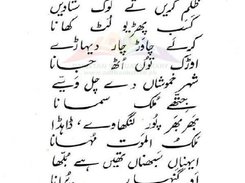 ظلم کریں تے لوک ستاویں
کسب پھڑیو لُٹ کھانا
کرلے چاوڑ چار دیہاڑے
اوڑک توں اُٹھ جانا
شہر خموشاں دے چل وسیے
جتھے ملک سمانا
بھر بھر پور لنگھاوے ڈاہڈا
ملک الموت مہانا
ایہناں سبھناں تھیں ہے بلھا